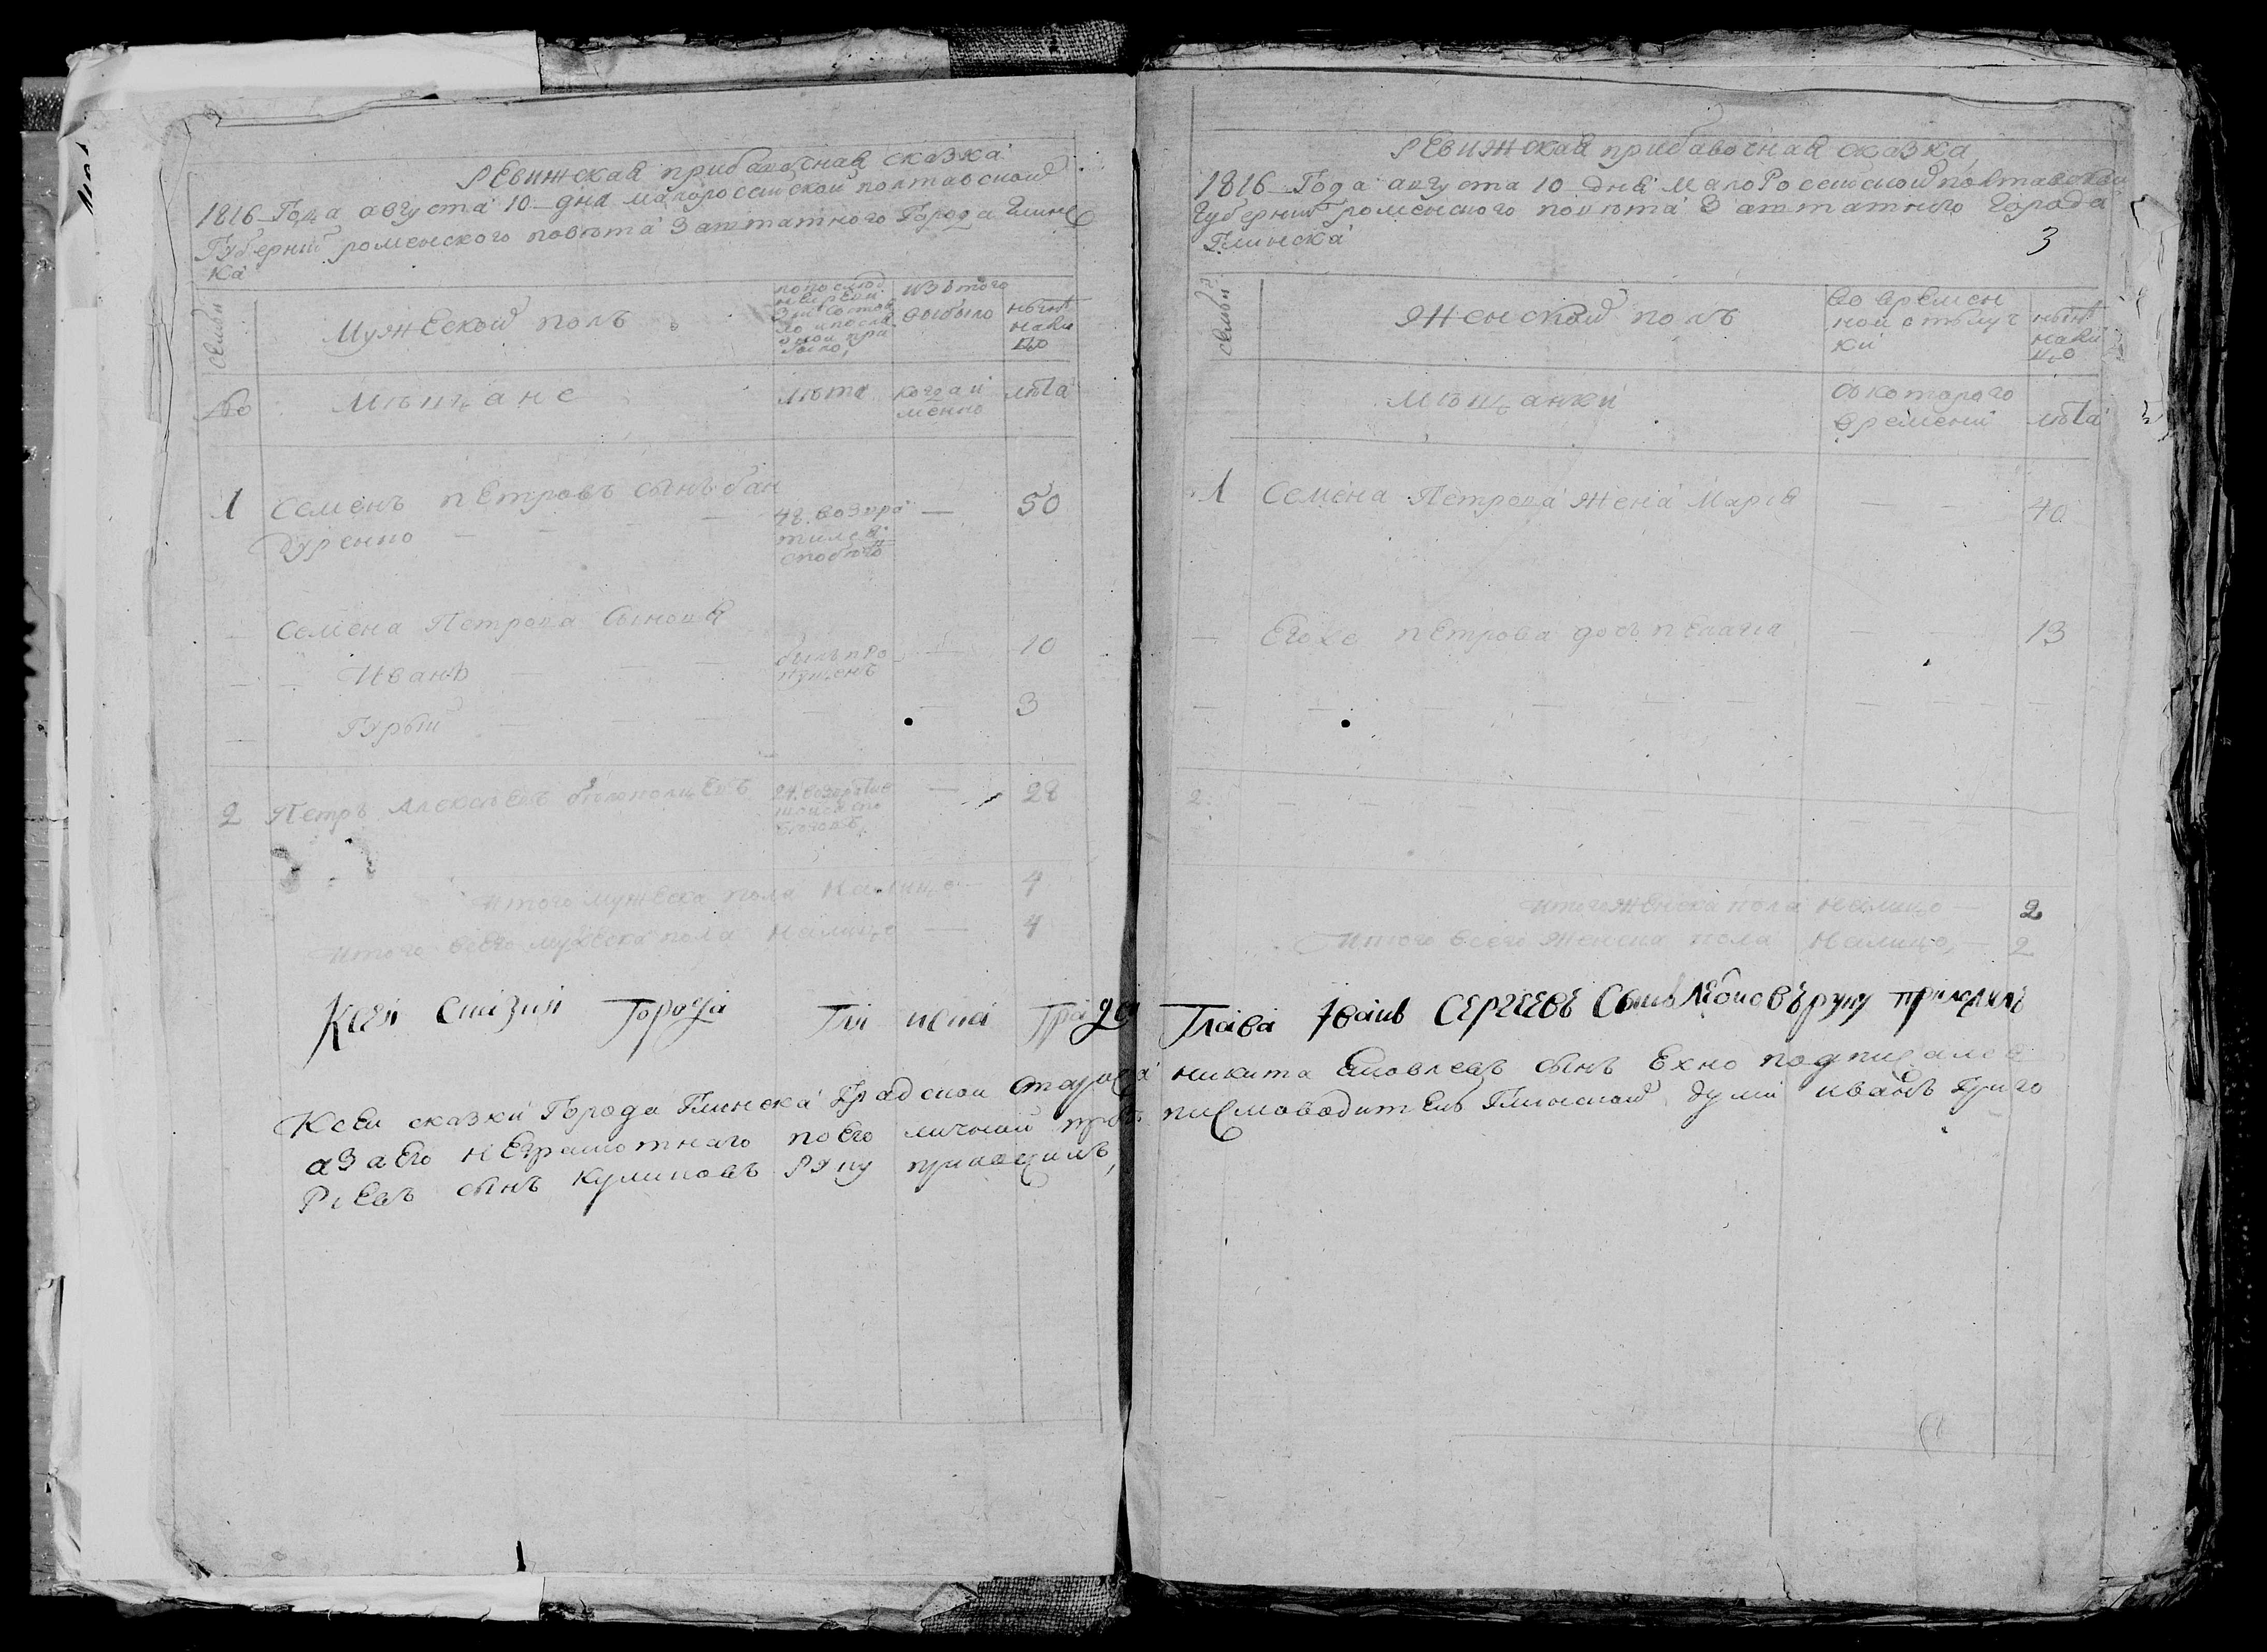 РЕвижская прибавочная сказка
1816 Года августа 10 дня малоросийской полтавской
Губернии роменского повѣта Заштатного Города Глинс
ка
семьи
Мужеской полъ
изътого
выбыло
нынѣ
нали
цо
№
Мѣщане
лѣта
когда и
менно
лѣта
1 Семенъ пЕтровъ сынъ бан
дуренко
48 возвра
тился
50
Семена Петрова Сыновя
Иванъ
былъ про
пущенъ
10
Гурый
3
2 Петръ АлексѣЕвъ бѣлополцЕвъ
28
итого мужеска пола налицо 4
итого всего мужеска пола налицо 4
РЕвижская прибавочная сказка
1816 Года августа 10 дня МалоРосейской полтавской
Губернии роменского повѣта Заштатнего Города
Глинска
3
семьи
Женской полъ
во времен
ной отълуч
ки
нынѣ
нали
цо
Мѣщанки
съкоторого
времени
лѣта
1 Семена Петрова жена Марія
40
Егоже пЕтрова дочь пелагія
13
2
итого женска пола налицо 2
итого всего женска пола налицо 2
Ксей Сказки Города Глинска Градс Глава Іванъ СЕРГЕЕВЪ Сынъ руку приложилъ
КсЕи сказки Города Глинска Градской староста никита Яковлевъ сынъ Ехно подписался
аЗаЕго нЕграмотнаго поЕго личной прозбѣ писмоводитЕль Глинской думи иванъ Григо
РіЕвъ сынъ Куликовъ Руку приложилъ